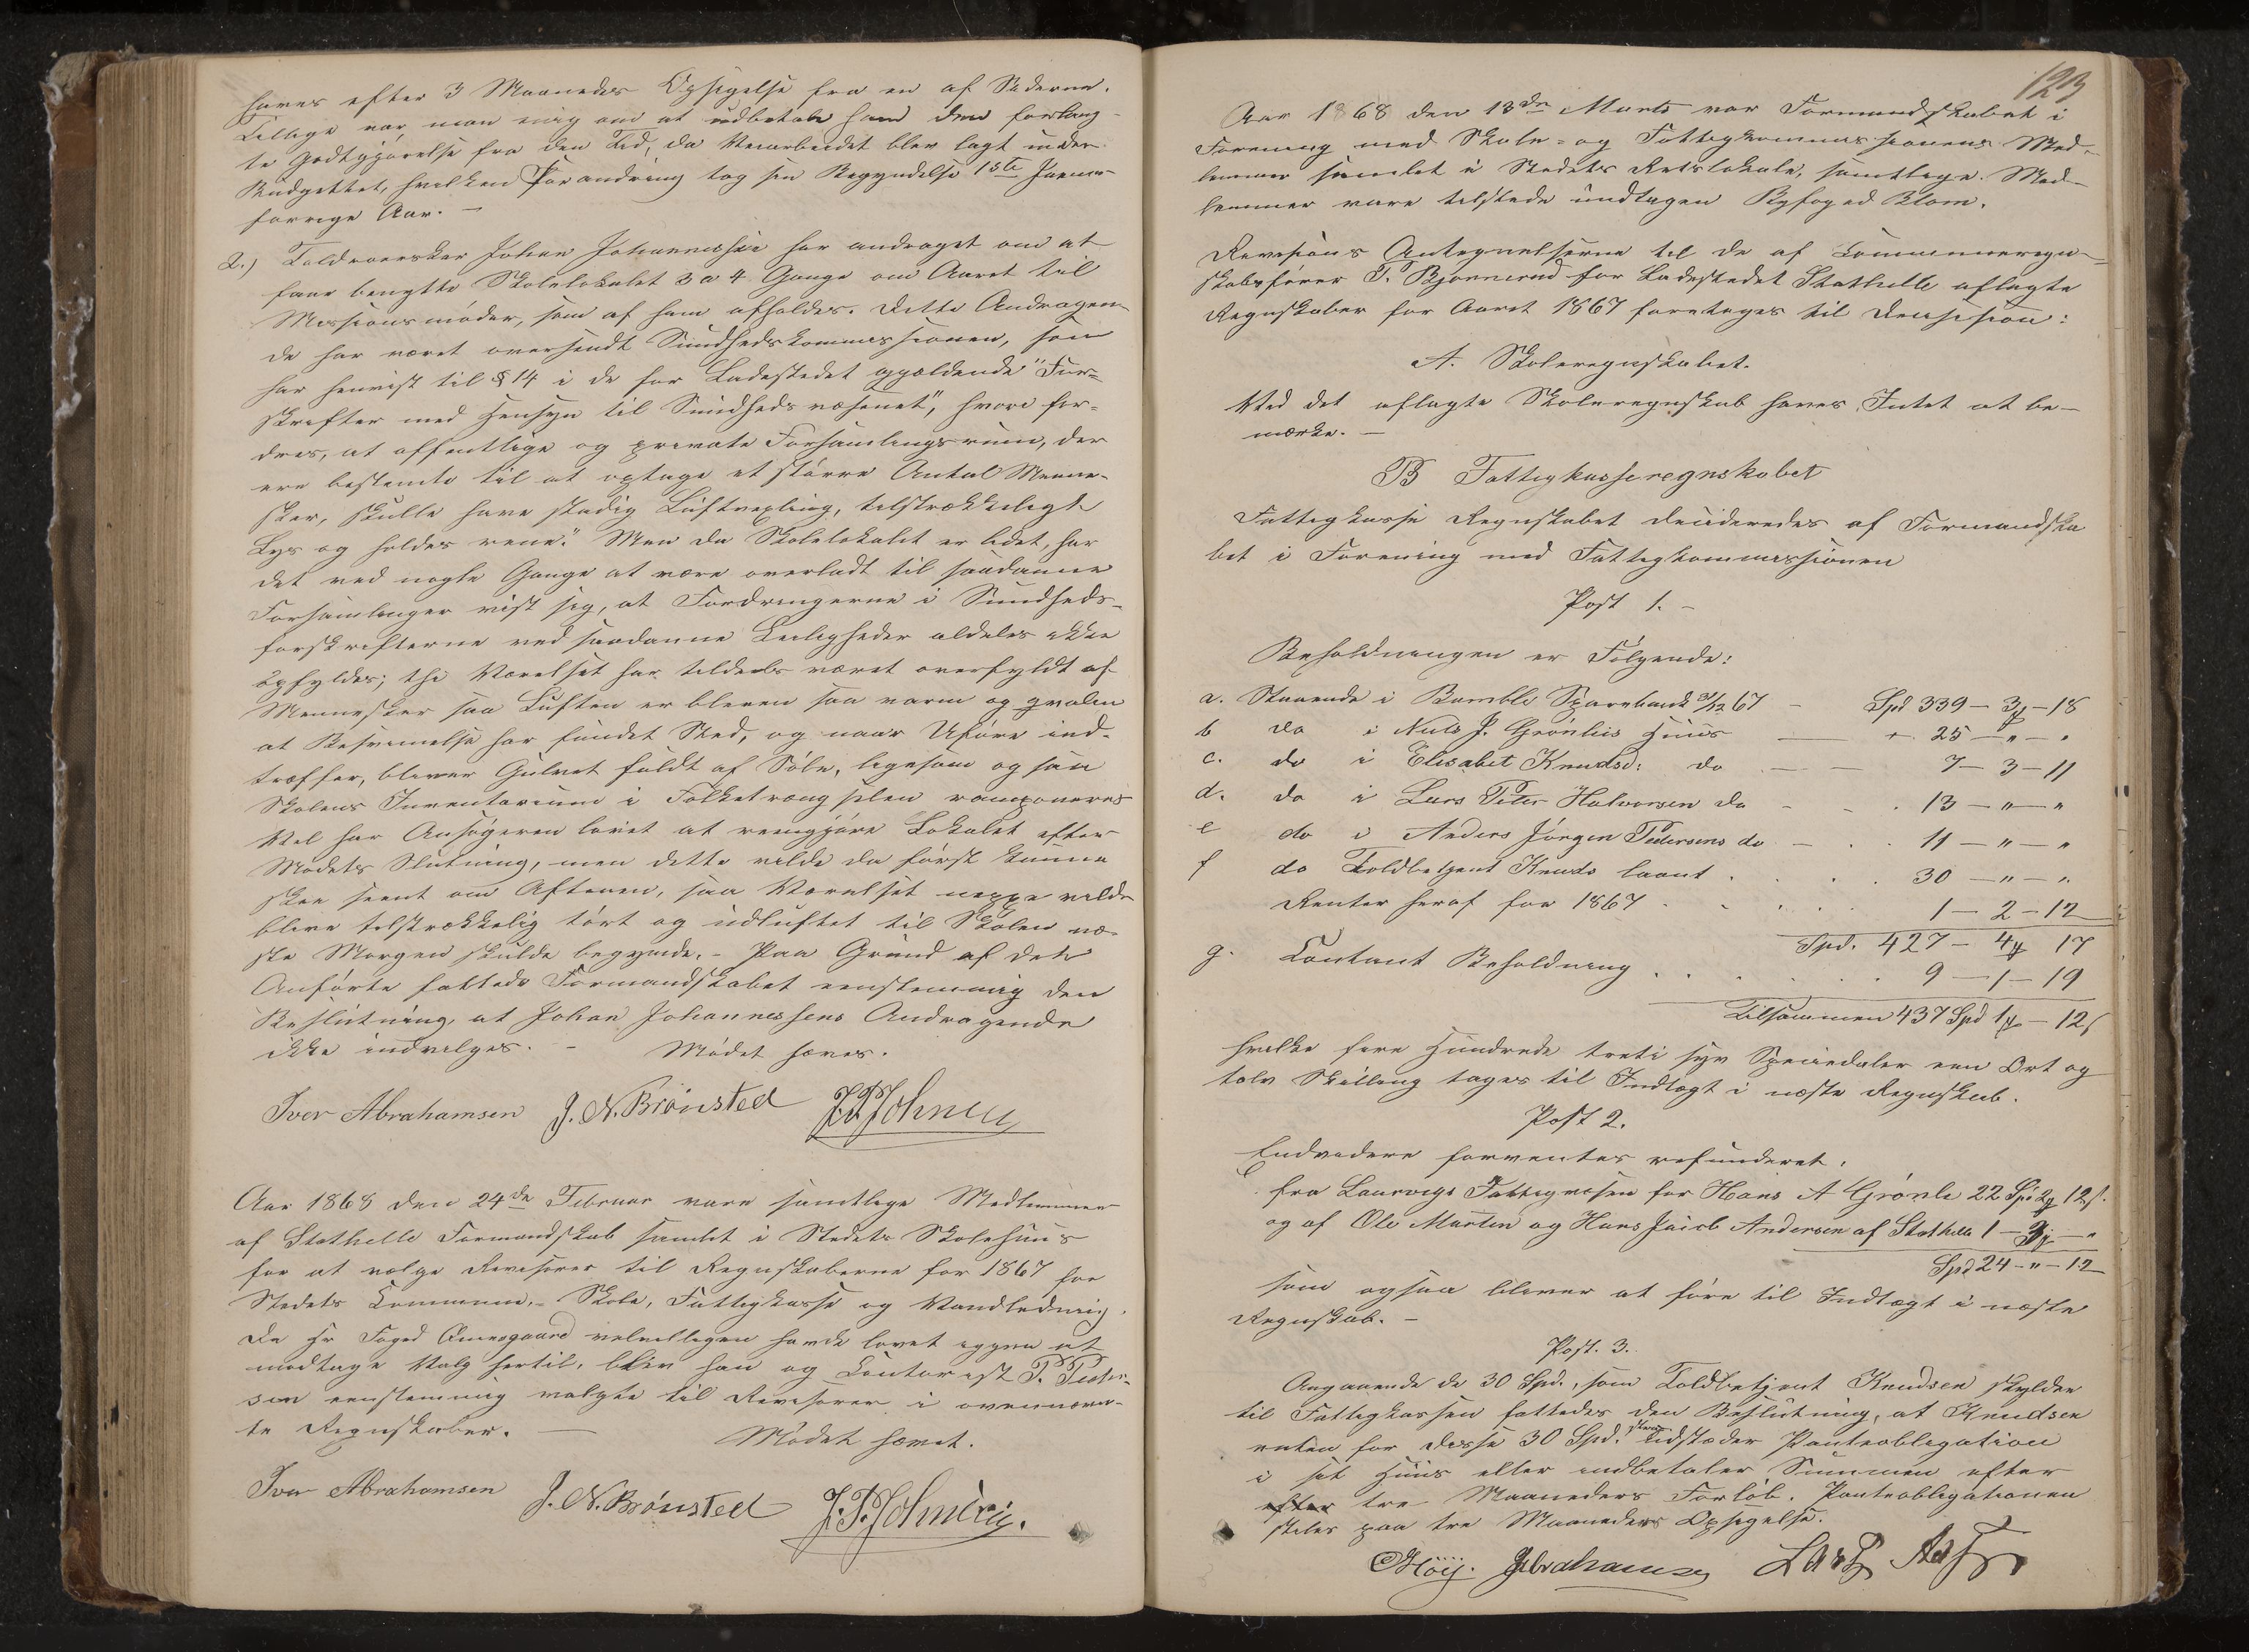 haves efter 3 Maaneders Opsigelse fra en af Siderne.
Tillige var man enig om at udbetale ham den forlang-
te Godtgjørelse fra den Tid, da Veiarbeidet blev lagt under
Budgettet, hvilken Forandring tog sin Begyndelse 1ste Januar
forrige Aar. –
2.) Toldroersker Johan Johannessen har andraget om at
faar benytte Skolelokalet 3 a 4 Gange om Aaret til
Missionsmøder, som af ham afholdes. Dette Andragen-
de har været oversendt Sundhedskommissionen, som
har henvist til § 14 i de for Ladestedet gjældende "For-
skrifter med Hensyn til Sundhedsvæsenet", hvori for-
dres, at offentlige og private Forsamlingsrum, der
ere bestemte til at optage et større Antal Menne-
sker, skulle have stadig Luftvexling, tilstrækkeligt
Lys og holdes rene." Men da Skolelokalet er lidet, har
det ved nogle Gange at være overladt til saadanne
Forsamlinger vist sig, at Fordringerne i Sundheds-
forskrifterne ved saadanne Leiligheder aldeles ikke
opfyldes; thi Værelset har tildeels været overfyldt af
Mennesker saa Luften er bleven saa varm og qvalm
at Besvimelse har fundet Sted, og naar Uføre ind-
træffer, bliver Gulvet fuldt af Søle, ligesom ogsaa
Skolens Inventarium i Folketrængslen ramponeres
Vel har Ansøgeren lovet at rengjøre Lokalet efter
Mødets Slutning, men dette vilde da først kunne
skee seent om Aftenen, saa Værelset neppe vilde
blive tilstrækkelig tørt og udluftet til Skolen næ-
ste Morgen skulde begynde. – Paa Grund af det
Anførte fattede Formandskabet eenstemmig den
Beslutning, at Johan Johannessens Andragende
ikke indvilges. – Mødet hæves.
Iver Abrahamsen J. N. Brønsted
Aar 1868 den 24de Februar vare samtlige Medlemmer
af Stathelle Formandskab samlet i Stedets Skolehuus
for at vælge Revisorer til Regnskaberne for 1867 for
Stedets Commune,- Skole, Fattigkasse og Vandledning.
Da Hr Foged velvilligen havde lovet igjen at
modtage Valg hertil, blev han og Contorist P. Peder-
sen eenstemmig valgte til Revisorer i ovennævn-
te Regnskaber. — Mødet hævet.
Iver Abrahamsen J. N. Brønsted
123
Aar 1868 den 13de Marts var Formandskabet i
Forening med Skole- og Fattigkommissionens Med-
lemmer samlet i Stedets Retslokale, samtlige Med-
lemmer vare tilstede undtagen Byfoged Blom.
Revisions Antegnelserne til de af Communeregn-
skabsfører T. Bjørnerud for Ladestedet Stathelle aflagte
Regnskaber for Aaret 1867 foretoges til Decision:
A. Skoleregnskabet.
Ved det aflagte Skoleregnskab haves Intet at be-
mærke. —
B Fattigkasseregnskabet
Fattigkasse Regnskabet decideredes af Formandska
bet i Forening med Fattigkommissionen
Post 1. –
Beholdningen er Følgende:
a. Staaende i Bamble Sparebank 31/12 67 – Spd 339 – 3 – 18
b do i Niels J. Grønlies Huus — + 25 – " – "
c. do i Elisabet Knudsd: do — 7 – 3 – 11
d. do i Lars Peter Halvorsen do – . 13 – " – "
e do i Anders Jørgen Pedersens do – . 11 – " – "
f do Toldbetjent Knuds laant . . 30 – " – "
Renter heraf for 1867 . . 1 – 2 – 12
Spd. 427 – 4 17
g. Contant Beholdning . . . 9 – 1 – 19
Tilsammen 437 Spd 1 – 12
hvilke fire Hundrede treti syv Speciedaler een Ort og
tolv Skilling tages til Indtægt i næste Regnskab.
Post 2.
Endvidere forventes refunderet.
fra Laurvigs Fattigvæsen for Hans A Grønli 22 Spd 2 12
og af Ole Martin og Hans Jacob Andersen af Stathelle 1 – 3 – "
Spd 24 – " – 12
som ogsaa bliver at føre til Indtægt i næste
Regnskab. –
Post. 3.
Angaaende de 30 Spd., som Toldbetjent Knudsen skylder
til Fattigkassen fattedes den Beslutning, at Knudsen
enten for disse 30 Spd. udsteder Panteobligation
i sit Huus eller indbetaler Summen efter
efter tre Maaneders Forløb. Panteobligationen
stiles paa tre Maaneders Opsigelse.
Høij. Abrahamsen